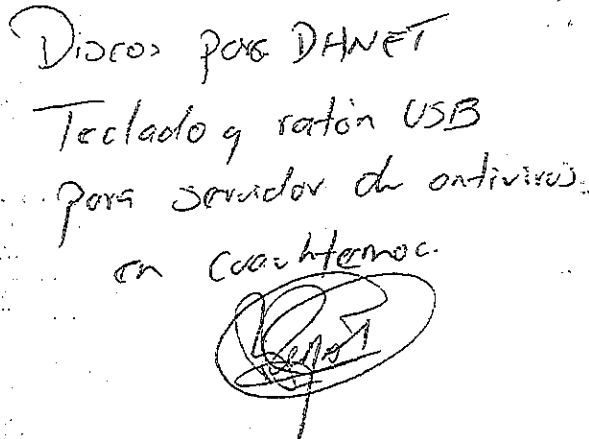 Discos para DHNET
Teclado y ratón USB
para servidor de antivirus
en Cuauhtemoc.